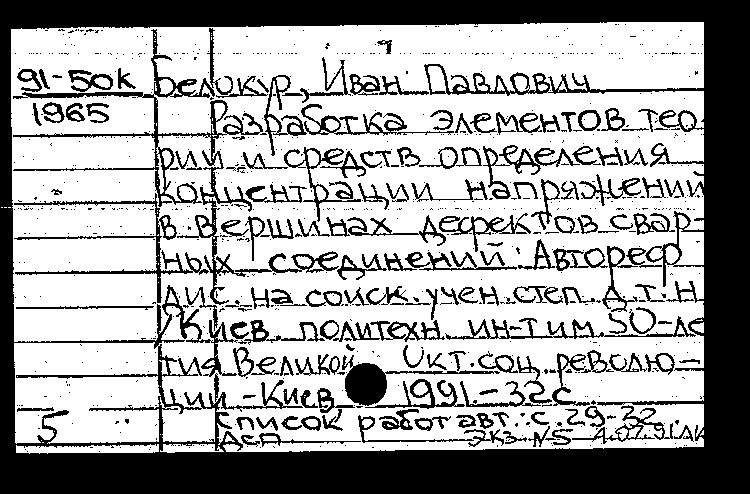 91-50к Белокур, Иван Павлович
1965 Разработка элементов тео-
рии и средств определения
концентрации напряжений
в вершинах дефектов свар-
ных соединений: Автореф
дис. на соиск. учен. степ. д.т.н
/Киев. политехн. ин-т им. 50-ле
тия Великой Окт. соц. револю-
ции - Киев, 1991. - 32с
5 Список работ авт.: с. 29-32.
ДСП Экз. №5